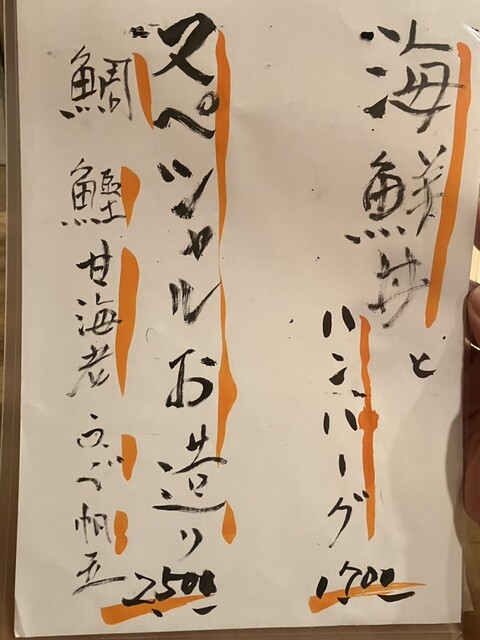 海鮮丼と
ハンバーグ
1700
スペシャルお造り
鯛 鰹 甘海老 うに 帆立
2500